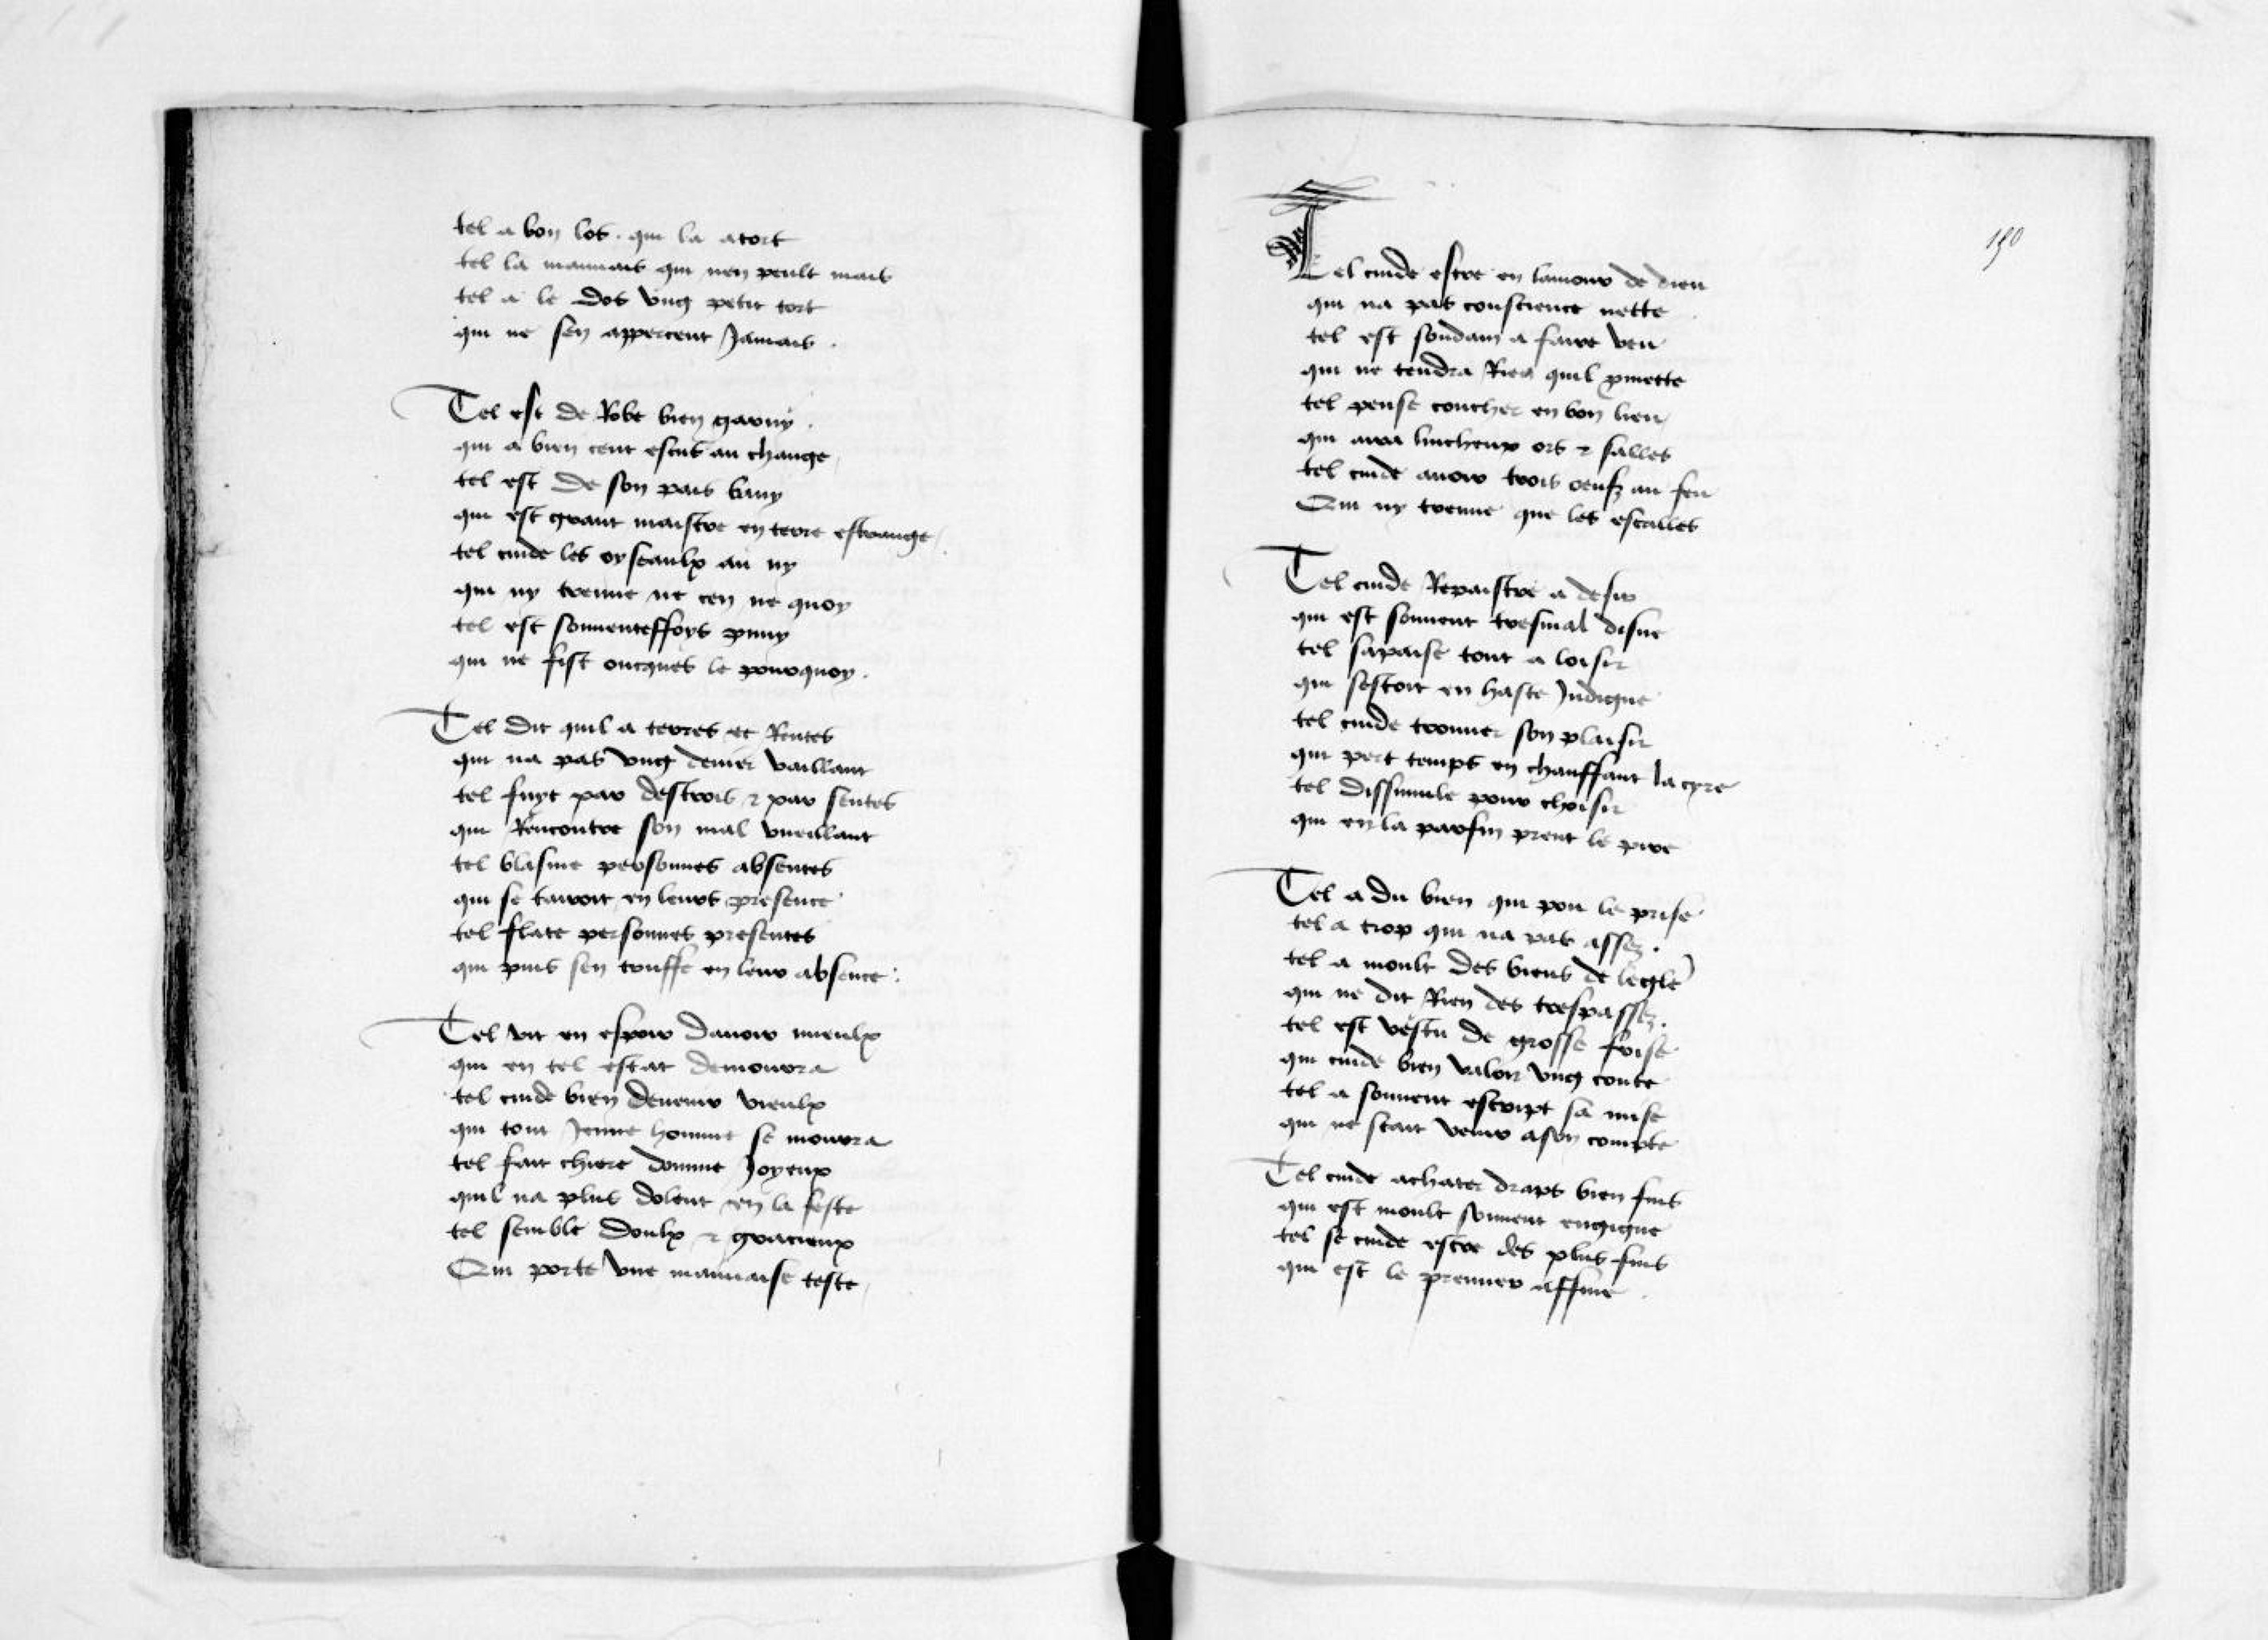 tel a bon los. qui la atort
tel la mauuais qui nen peult mais
tel a le dos vng petit tort
qui ne sen appercent Jamais.
Tel est de Robe bien garny.
qui a bien cent escus au change
tel est de son pais bany
qui est grant maistre en terre estrange
tel cuide les oyseaulx au ny
qui ny treuue ne cen ne quoy
tel est souuenteffoys puny
qui ne fist oncques le pourquoy.
Tel dit quil a terres et Rentes
qui na pas vng denier vaillant
tel fuyt par destrois & par sentes
qui Rencontre son mal vueillant
tel blasme personnes absentes
qui se tairoit en leurs presence
tel flate personnes presentes
qui puis sen truffe en leur absence:
Tel vit en espoir dauoir mieulx
qui en tel estat demourra
tel cuide bien deuenir vieulx
qui tout Jeune homme se mourra
tel fait chiere domme Joyeux
quil na plus dolent en la feste
tel semble doulx & gracieux
Qui porte vne mauuaise teste
190
Tel cuide estre en lamour de dieu
qui na pas conscience nette
tel est soudain a faire veu
qui ne tendra Rien quil pmette
tel pense coucher en bon lieu
qui aura lincheux ors & salles
tel cuide auoir trois oeufz au feu
Qui ny treuue que les escalles
Tel cuide Repaistre a desir
qui est souuent tresmal disne
tel sapaise tout a loisir
qui sestoit en haste Indigne
tel cuide trouuer son plaisir
qui pert temps en chauffant la cyre
tel dissimule pour choisir
qui en la parfin prent le pire
Tel a du bien qui pou le prise
tel a trop qui na pas assez.
tel a moult des biens de legle
qui ne dit Rien des trespassez.
tel est vestu de grosse frise
qui cuide bien valoir vng conte
tel a souuent escript sa mise
qui ne scait venir ason compte
Tel cuide achater draps bien fins
qui est moult souuent engigne
tel se cuide estre des plus fins
qui est le premier affine.